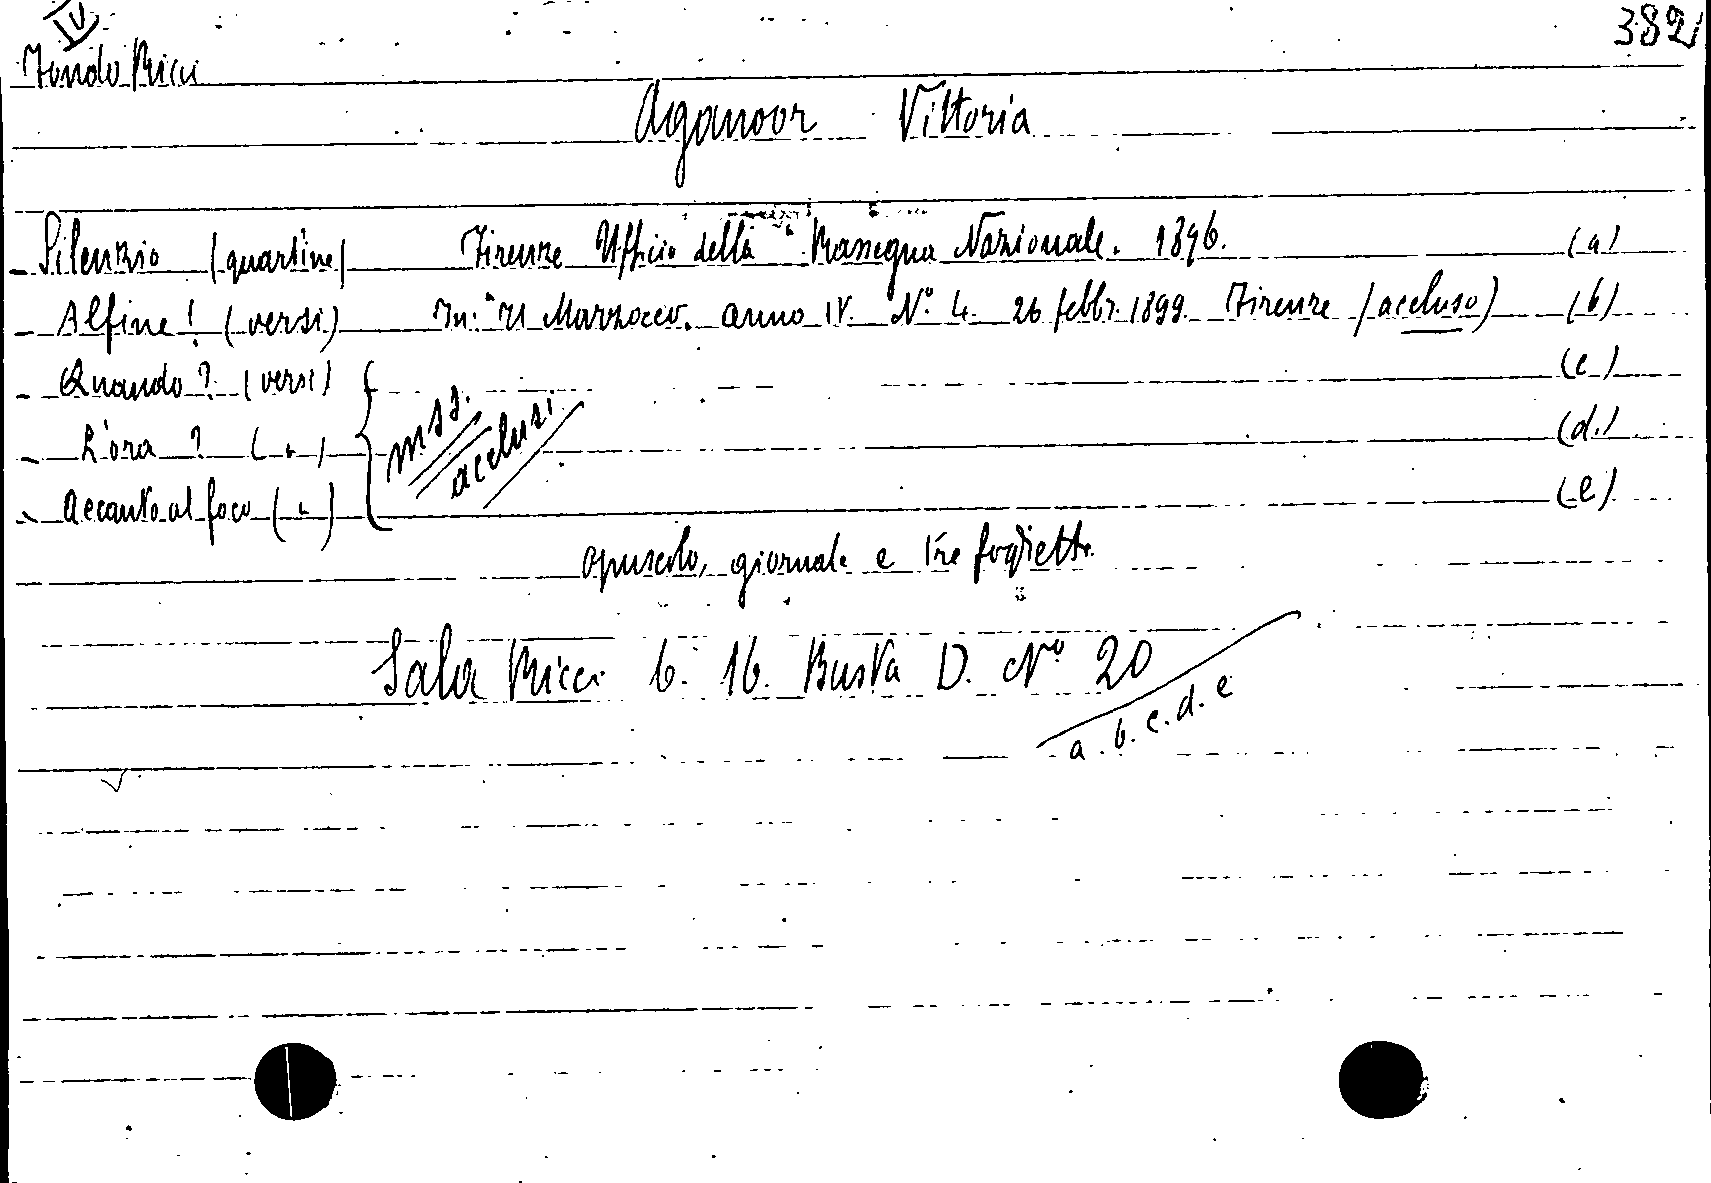 IV
382
Fondo Ricci
Aganoor Vittoria
- Silenzio (quartine) Firenze Ufficio della "Rassegna Nazionale. 1896. (a)
- Alfine! (versi) In: "Il Marzocco. anno IV. N° 4. 26 febbr. 1899. Firenze (accluso) (b)
- Quando? (versi) (c)
- L'ora? ( " ) (d.)
- Accanto al foco ( " ) (e)
mss. acclusi
opuscolo, giornale e tre foglietti
Sala Ricci 6. 16. Busta D. N° 20
a. b. c. d. e